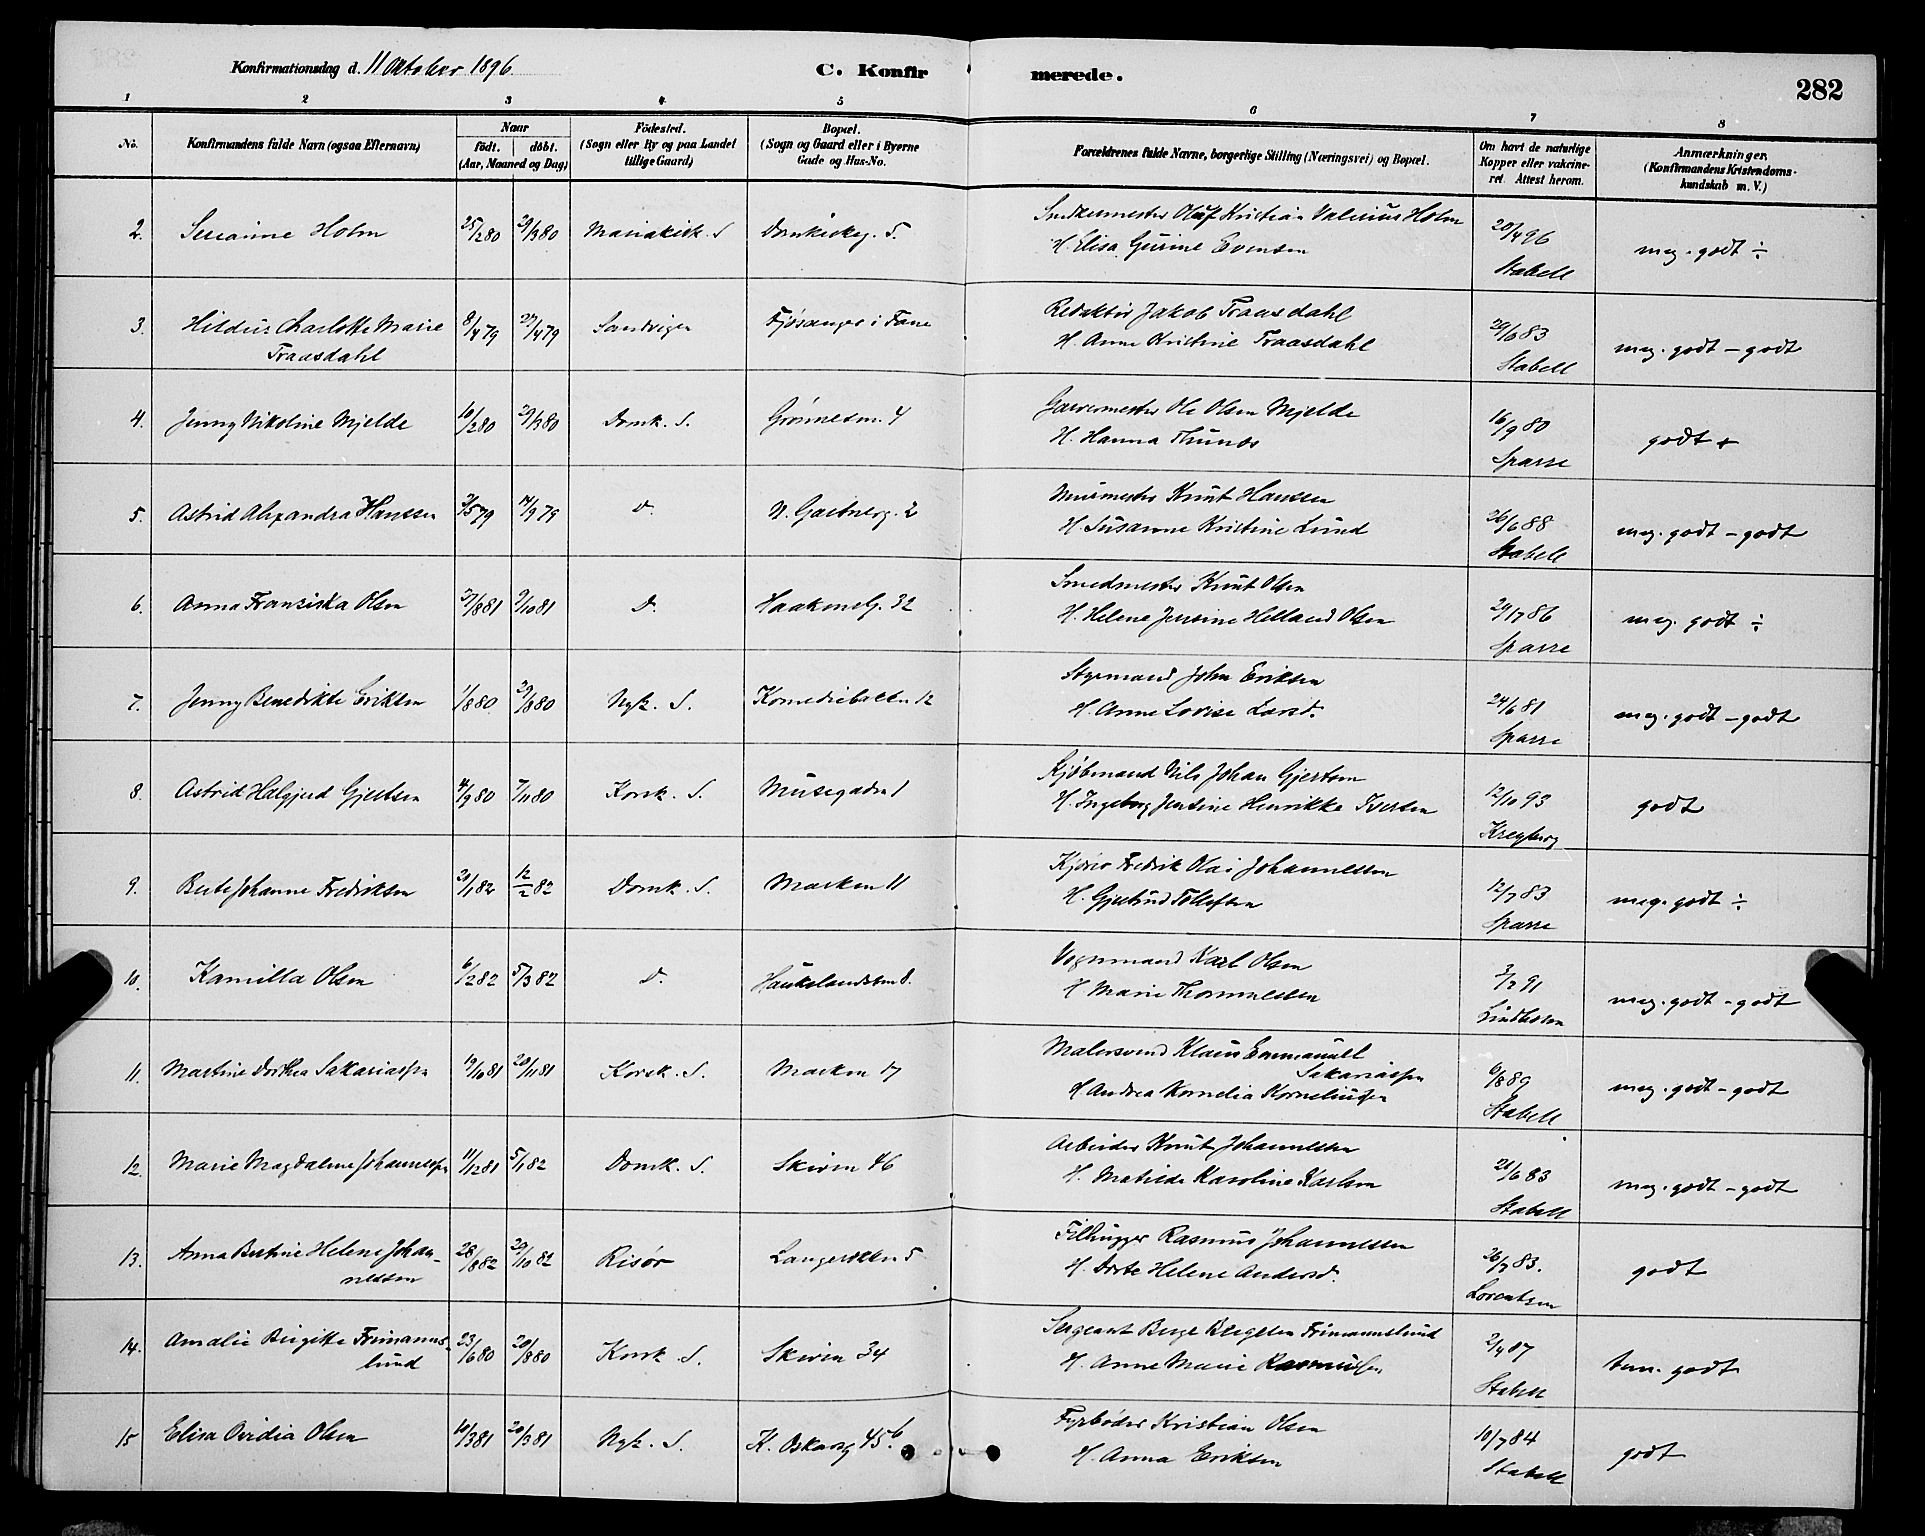 Konfirmationsdag d. 11 Oktober 1896
C. Konfirmerede.
282
1 2 3 4 5 6 7 8
No. Konfirmandens fulde Navn (ogsaa Efternavn) Naar født. døbt. (Aar, Maaned og Dag) Fødested. (Sogn eller By og paa Landet tillige Gaard) Bopæl. (Sogn og Gaard eller i Byerne Gade og Hus-No. Forældrenes fulde Navne, borgerlige Stilling (Næringsvei) og Bopæl. Om havt de naturlige Kopper eller vakcineret. Attest herom. Anmærkninger. (Konfirmandens Kristendomskundskab m. V.)
2. Serianne Holm 25/2 80 29/3 80 Mariakirk. S Domkirkeg. 5. Snedkermester Oluf Kristian Valerius Holm
H. Elisa Gurine Evensen 20/4 96 Stabell meg. godt ÷
3. Hildur Charlotte Marie Traasdahl 8/4 79 27/4 79 Sandvigen Fjøsanger i Fane Redaktør Jakob Traasdahl
H. Anne Kristine Traasdahl 29/6 83 Stabell meg. godt - godt
4. Jenny Nikoline Mjelde 10/2 80 29/3 80 Domk. S. Grønnesm. 4 Garvermester Ole Olsen Mjelde
H. Hanna Thunes 16/9 80 Sparre godt +
5. Astrid Alexandra Hanssen 3/5 79 14/9 79 D. N. Gartnerg. 2 Murmester Knut Hanssen
H. Susanne Kristine Lund 26/6 88 Stabell meg. godt - godt
6. Anna Fransiska Olsen 27/8 81 9/10 81 D. Haakonsg. 32 Smedmester Knut Olsen
H. Helene Jensine Helland Olsen 29/7 86 Sparre meg. godt ÷
7. Jenny Benedikte Eriksen 1/8 80 29/8 80 Nyk. S. Komediebakken 12 Styrmand John Eriksen
H. Anne Lovise Larsd. 24/6 81 Sparre meg. godt - godt
8. Astrid Halgjerd Gjertsen 4/9 80 7/11 80 Korsk. S. Musegaden 1 Kjøbmand Nils Johan Gjertsen
H. Ingeborg Jentine Henrikke Iversen 12/10 93 Kreyberg godt
9. Berte Johanne Fredriksen 20/1 82 12/2 82 Domk. S. Marken 11 Kjører Fredrik Olai Johannessen
H. Gjertrud Tollefsen 12/7 83 Sparre meg. godt ÷
10. Kamilla Olsen 6/2 82 5/3 82 D. Haukelandsvn 8. Vognmand Karl Olsen
H Marie 3/7 91 Lindholm meg. godt - godt
11. Martine Dorthea Sakariassen 19/10 81 20/11 81 Korsk. S. Marken 17 Malersvend Klaus Emmanuel Sakariassen
H Andrea Kornelia Korneliussen 6/8 89 Stabell meg. godt - godt
12. Marie Magdalene Johannessen 11/12 81 5/1 82 Domk. S. Skiven 46 Arbeider Knut Johannessen
H. Matilde Karoline Karlsen 21/6 83 Stabell meg. godt - godt
13. Anna Bertine Helene Johannessen 28/8 82 29/10 82 Risør Langerekken 5 Filhugger Rasmus Johannessen
H. Dorte Helene Andersd. 26/7 83. Lorentsen godt
14. Amalie Birgitte Frimannslund 23/6 80 20/8 80 Korsk S. Skiven 34 Sergeant Berge Bergesen Frimannslund
H. Anne Marie Rasmussen 2/4 87 Stabell tem. godt
15 Elisa Ovidia Olsen 10/3 81 20/3 81 Nyk. S. K. Oskarsg 45.b Fyrbøder Kristian Olsen
H. Anna Eriksen 10/7 84 Stabell godt